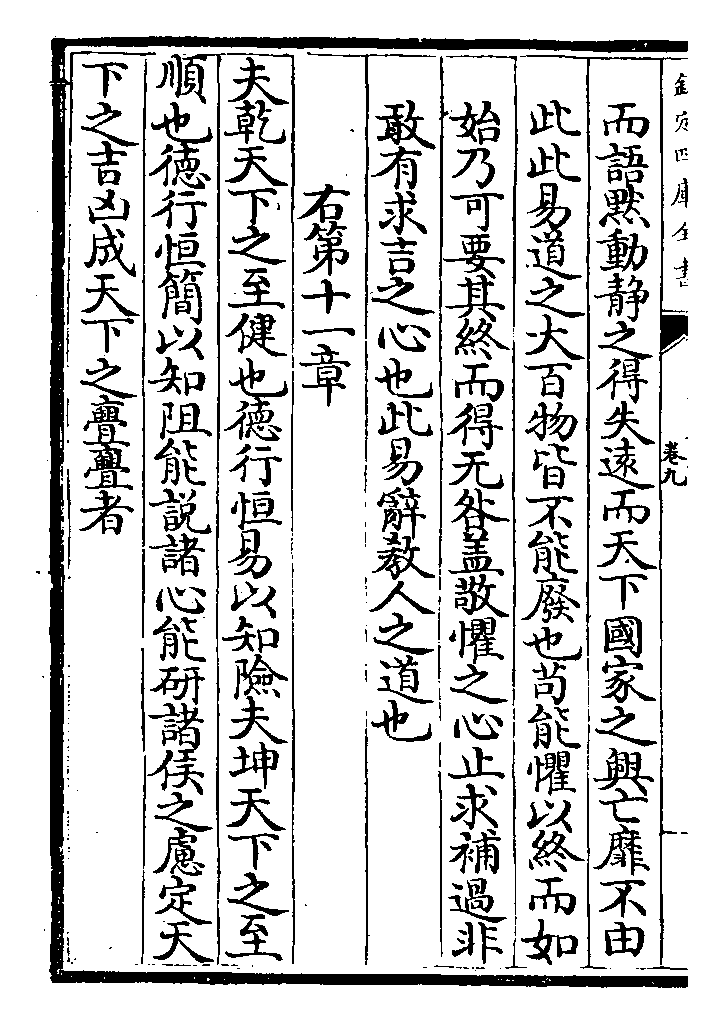 欽定四庫全書
卷九
而語黙動静之得失遠而天下國家之興亡靡不由
此此易道之大百物皆不能廢也苟能懼以終而如
始乃可要其終而得无咎盖敬懼之心止求補過非
敢有求吉之心也此易辭教人之道也
右第十一章
夫乾天下之至健也德行恒易以知險夫坤天下之至
順也德行恒簡以知阻能説諸心能研諸侯之慮定天
下之吉凶成天下之亹亹者